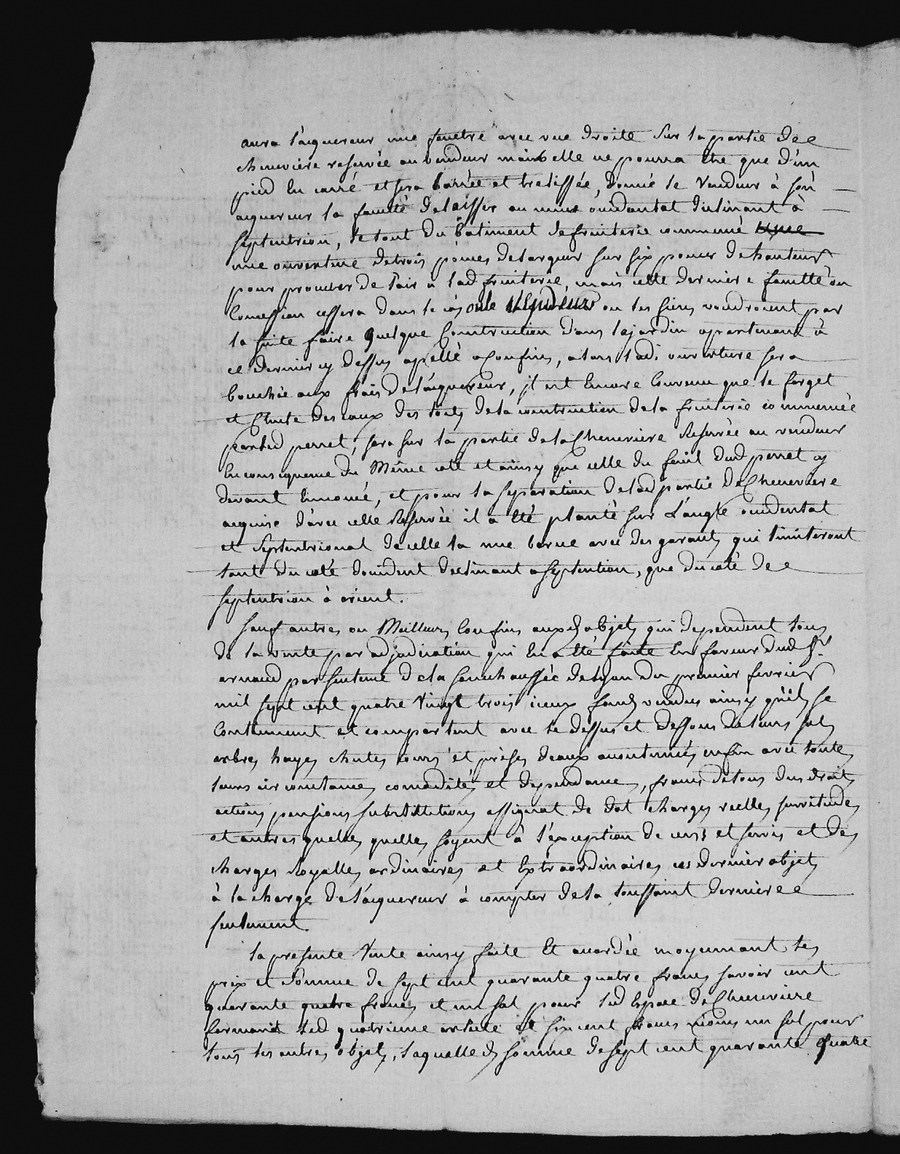 aura l'aquereur une fenetre avec vue droite sur la partie de
cheneviere reservée au vendeur mais elle ne pourra etre que d'un
pied en carré et sera barrée et trelissée, donne le vendeur à son
aquereur la faculté de laisser au mur occidental declinant à
septentrion, le tout du batiment de fruiterie commencé
une ouverture de trois pouces de largeur sur six pouces de hauteur
pour procurer de l'air à lad fruiterie, mais cette derniere faculté ou
Concession cessera dans le cas ou le vendeur ou les siens voudroient par
la suite faire quelque Construction dans le jardin apartenant à
ce dernier cy dessus apellé a confins, alors ladi. ouverture sera
bouchée aux frais de l'aquereur, il est Encore Convenu que le forget
et Chute des eaux des toits de la construction de la fruiterie commencée
par led perret, sera sur la partie de la Cheneviere Reservée au vendeur
En consequence du Même coté et ainsy que celle du fenil dud perret cy
devant Enoncé, et pour la separation de lad partie de Cheneviere
acquise d'avec celle Reservée il a été planté sur l'angle occidental
et septentrional de celle la une borne avec des garants qui limiteront
tant du coté d'occident declinant a septention, que du coté de
septentrion à orient.
Sauf autres ou Meilleurs Confins auxd objets qui dependent tous
de la vente par adjudication qui En a été faite En faveur dud Sr.
arnaud par sentence de la senechaussée de Lyon du premier fevrier
mil sept cent quatre vingt trois iceux fonds vendus ainsy qu'ils se
Contiennent et comportent avec le dessus et dessous de leurs sol
arbres hayes chutes cours et prises deaux accoutumés enfin avec toute
leurs circonstances comodités et dependances, francs de tous dus droits
actions pensions substitutions assignat de dot charges reelles servitudes
et autres quelles quelles soyent à l'exception de cens et servis et des
charges Royalles ordinaires et Extraordinaires ces dernier objets
à la charge de l'aquereur à compter de la toussaint derniere
seulement.
La presente Vente ainsy faite Et accordée moyennant les
prix et somme de sept cent quarante quatre francs savoir cent
quarante quatre francs et un sol pour led Espace de Cheneviere
formant led quatrieme article et six cent francs moins un sol pour
tous les autres objets, laquelle d somme de sept cent quarante quatre